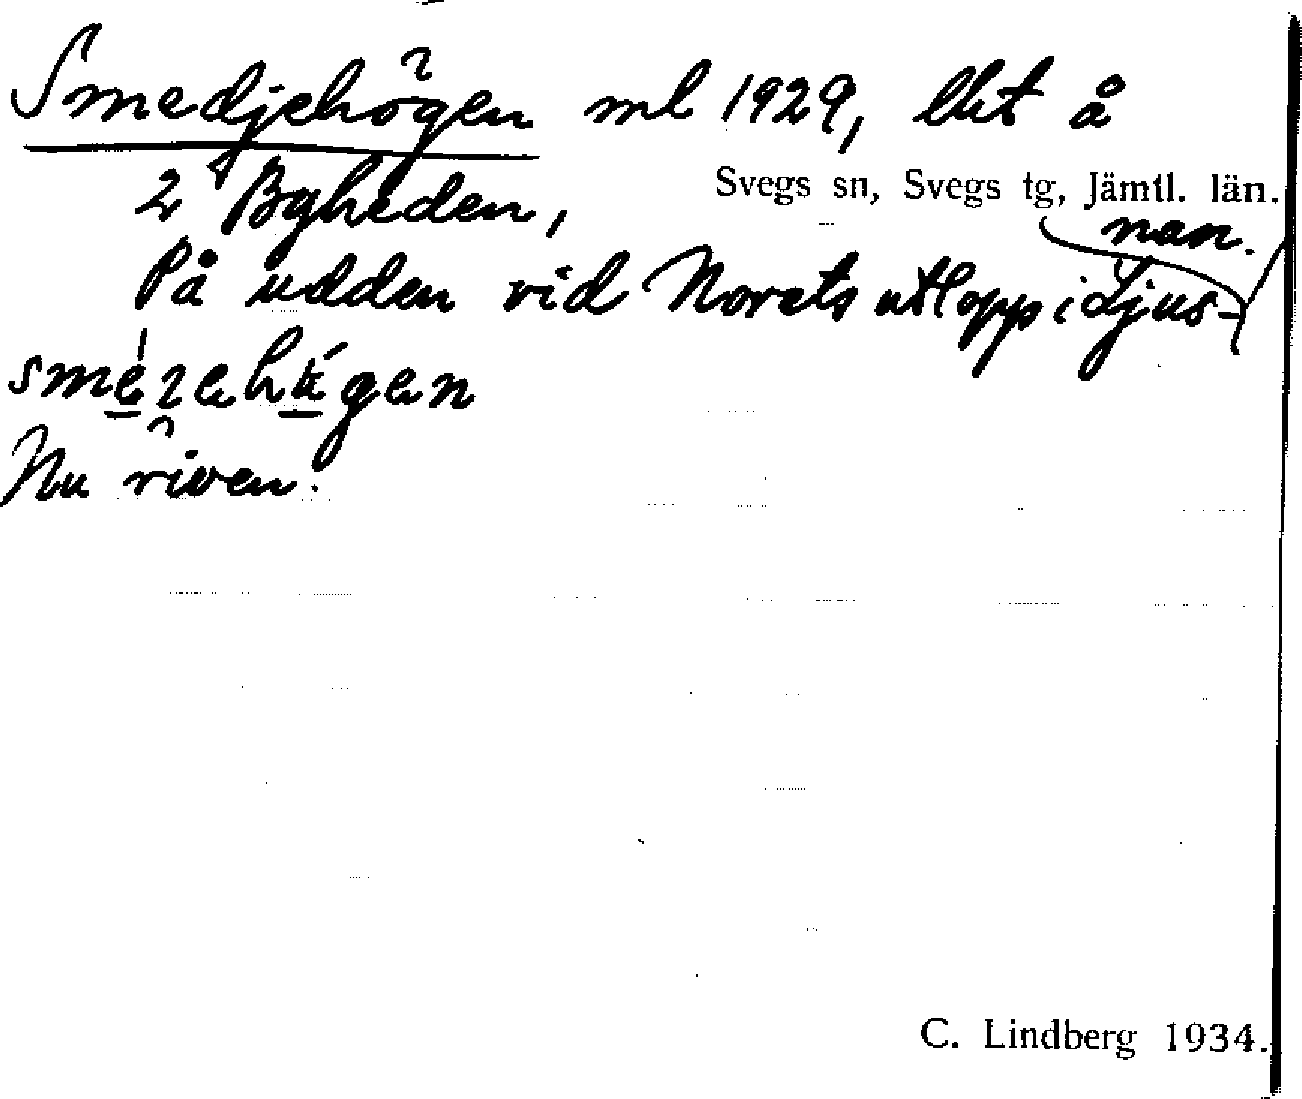 Smedjehögen ml 1929, lht å
Svegs sn, Svegs tg, Jämtl. län.
2 Byheden,
På udden vid Norets utlopp i Ljus-
nan.
Nu riven.
C. Lindberg 1934.